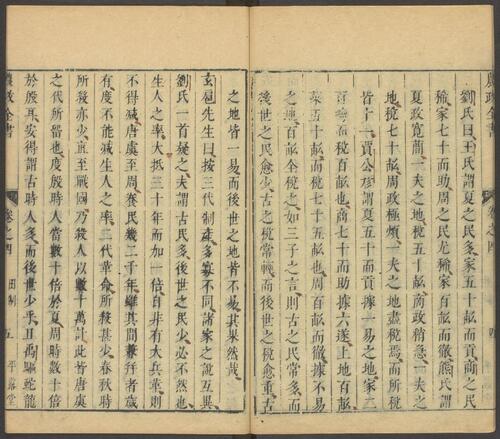 劉氏曰王氏謂夏之民多家五十畝而貢商之民
稀家七十而助周之民尤稀家百畝而徹熊氏謂
夏政寬簡一夫之地稅五十畝商政稍急一夫之
地稅七十畝周政極煩一夫之地盡稅焉而所稅
皆十一賈公彥謂夏五十而貢據一易之地家二
百畝而稅百畝也商七十而助據六遂上地百畝
萊五十畝也周百畝而徹據不易
之地百畝全稅之如三子之言則古之民常多而
後世之民愈少古之稅常輕而後世之稅愈重古
之地皆一易而後世之地皆不易其果然哉
玄扈先生曰按三代制產多寡不同諸家之說互異
劉氏一首疑之夫謂古民多後世之民少必不然也
生人之率大抵三十年而加一倍自非有大兵革則
不得減唐虞至周養民幾二千年雖其間兼并者歲
有度不能減生人之率三代革命所殺甚少春秋時
所殺亦少直至戰國乃殺人以數十萬計此皆唐虞
之代所留也度殷時人當數十倍於夏周時數十倍
於殷耳安得謂古時人多而後世少乎且禹驅蛇龍
農政全書 卷之四 田制 五 平露堂